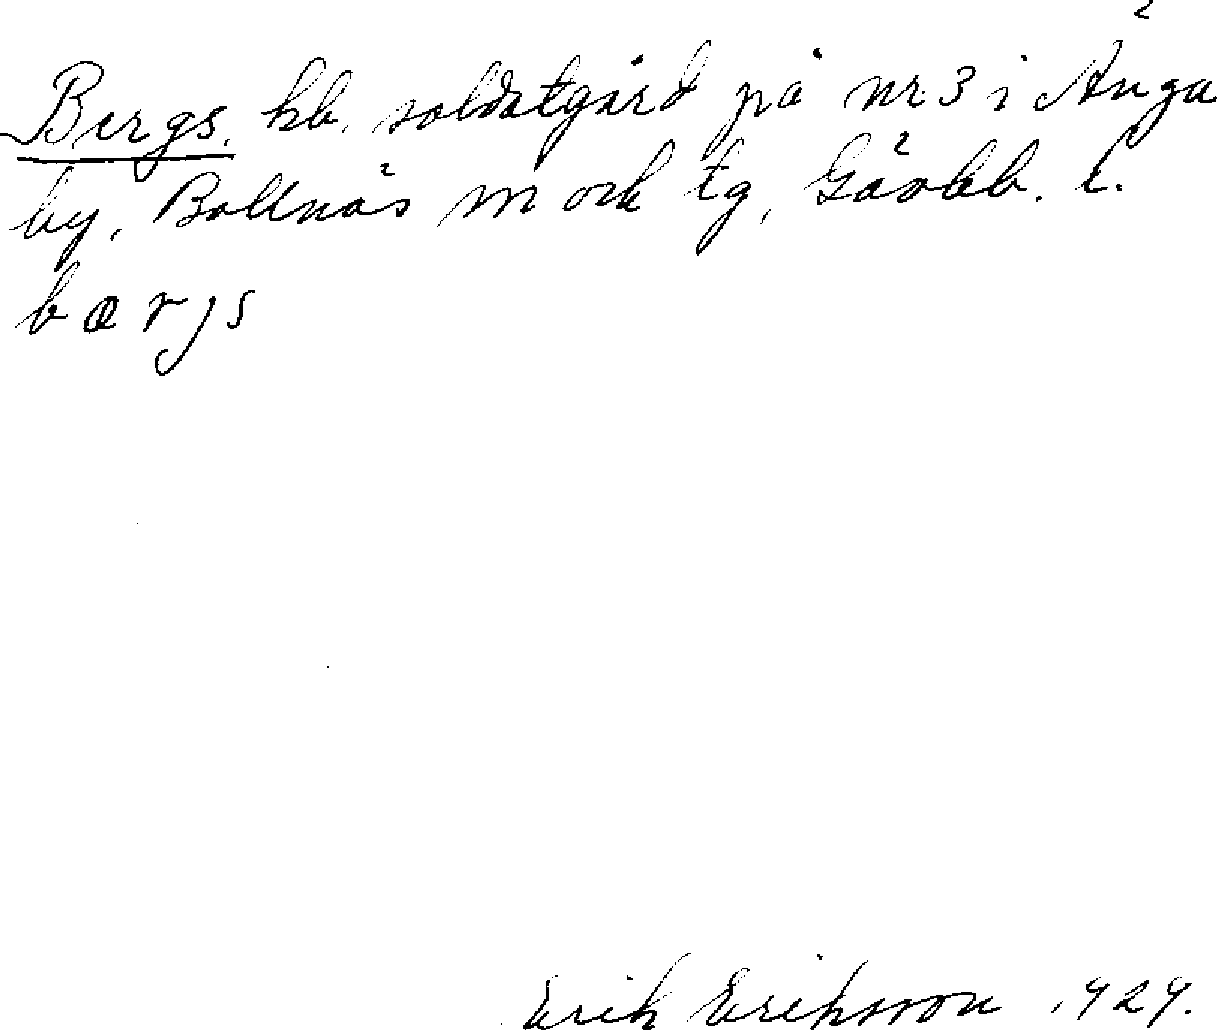 Bergs. hb. soldatgård på nr 3 i Änga
by, Bollnäs sn och tg, Gävlb. l.
bærjs
Erik Eriksson 1929.